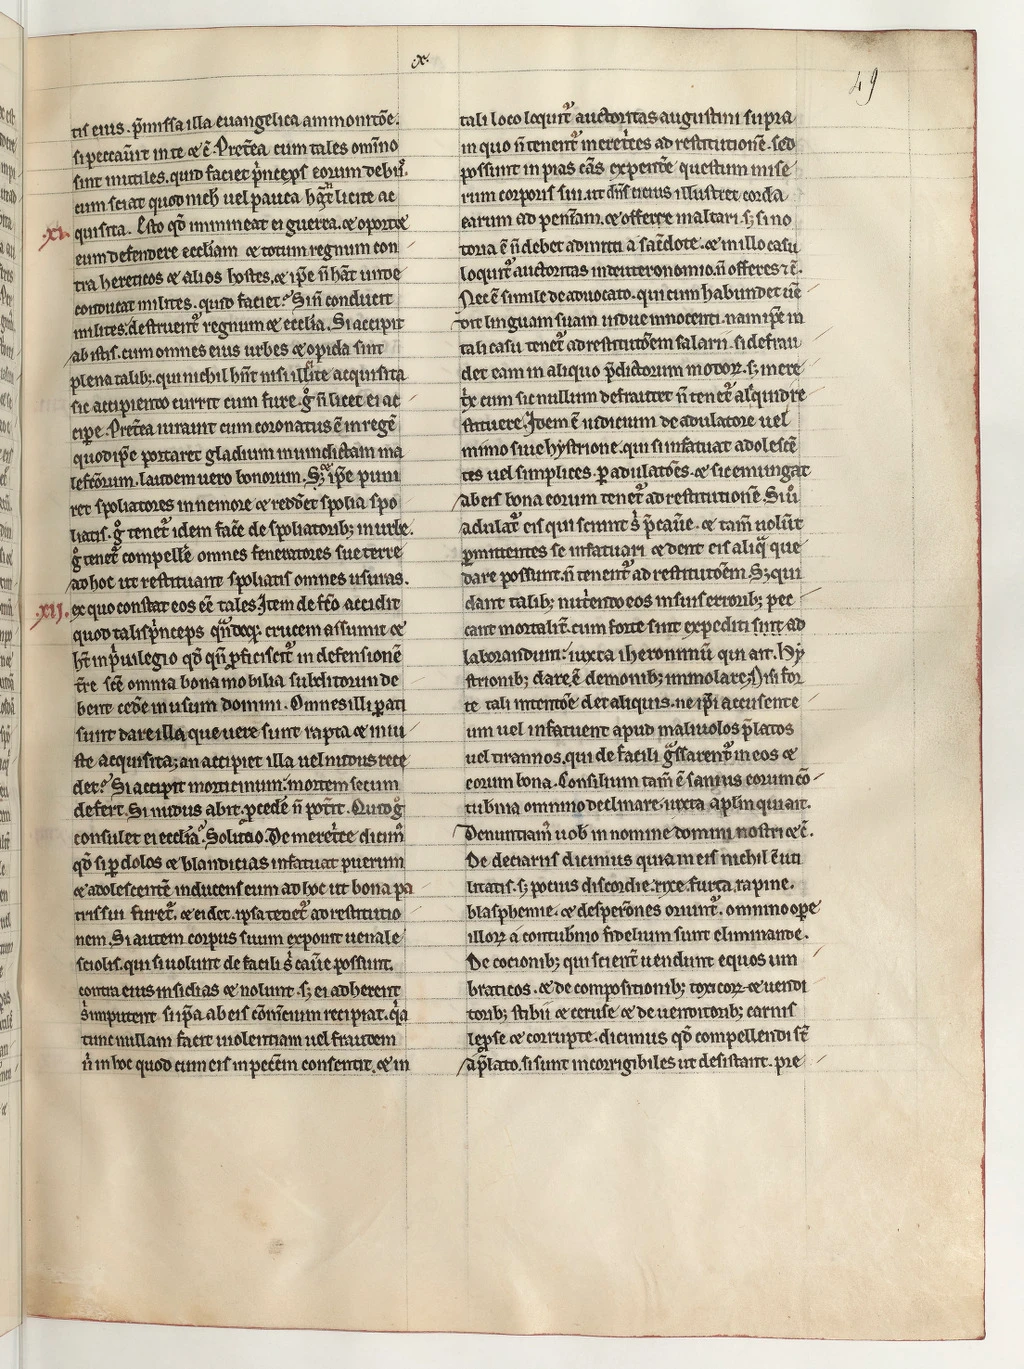 .x.
49
tis eius. p̄missa illa euangelica ammonitōe.
si peccau̅it in te ⁊ c̄. Pret̄ea cum tales om̄ino
sint inutiles. quid faciet p̄nceps eorum debit᷒.
cum sciat quod nich̄ uel pauca h̄nt licite ac
.XI.
quisita. Esto qd̄ immineat ei guerra. ⁊ oportet
eum defendere eccl̄iam ⁊ totum regnum con
tra hereticos ⁊ alios hostes. ⁊ ip̄e n̄ hāt unde
conducat milites. quid faciet? Si n̄ conducit
milites. destruent᷒ regnum ⁊ eccl̄ia. Si accipit
ab istis. cum omnes eius urbes ⁊ opida sint
plena talib; qui nichil hn̄t nisi illic̄ite acquisita
sic accipiendo currit cum fure. g° n̄ licet ei ac
cip̄e. Pret̄ea iurauit cum coronatus ē in regē
quod ip̄e portaret gladium in uindictam ma
lefcōrum. laudem uero bonorum. S; ip̄e puni
ret spoliatores in nemore ⁊ redd̄et spolia spo
liatis. g° tenet᷒ idem fac̄e de spoliatorib; in urbe.
g° tenet᷒ compell̄e omnes feneratores sue terre
ad hoc ut restituant spoliatis omnes usuras.
.XII.
ex quo constat eos eē tales Item de fc̄o accidit
quod talis p̄nceps qn̄doq;. crucem assumit ⁊
ht̄ in p̄uilegio qd̄ qn̄ p̄ficiscit᷒ in defensionē
t̄re scē omnia bona mobilia subditorum de
bent ced̄e in usum domini. Omnes illi pati
sunt dare illa que uere sunt rapta ⁊ iniu
ste acquisita; an accipiet illa uel nudus rece
det? Si accipit morticinum. mortem secum
defert. Si nudus abit. p̄cede n̄ pot̄it. Quid g°
consulet ei eccl̄ia? Solutio. De meret̄ce dicim᷒
qd̄ si p̄ dolos ⁊ blandicias infatuat puerum
⁊ adolescentē inducens eum ad hoc ut bona pa
tris sui furet᷒. ⁊ ei det. ipsa tenet᷒ ad restitutio
nem. Si autem corpus suum exponit uenale
sciolis. qui si uolunt de facili s̄ cau̅e possunt.
contra eius insidias ⁊ nolunt. s; ei adherent
s̄ imputent si ip̄a ab eis cōm̄cium recipiat. q̄a
tunc nullam facit uiolentiam uel fraudem
n̄ in hoc quod cum eis in pecc̄m consentit. ⁊ in
tali loco loquit᷒ auctoritas augustini supra
in quo n̄ tenent᷒ meret̄ces ad restitutionē. sed
possunt in pias cās expend̄e questum mise
rum corporis sui. ut dn̄s cicius illustret corda
earum ad penit̄am. ⁊ offerre ad altari s; si no
toria ē n̄ debet admitti a sac̄dote. ⁊ in illo casu
loquit᷒ auctoritas in deuteronomio. n̄ offeres ⁊ c̄.
Nec ē simile de aduocato. qui cum habundet uē
dit linguam suam uidue innocenti. nam ip̄e in
tali casu tenet᷒ ad restitutōem salarii. si defrau
det eam in aliquo p̄dictorum modoꝝ. s; mere
t̄x cum sic nullum defraudet n̄ tenet᷒ al'quid re
stituere. Idem ē iudicium de adulatore uel
mimo siue hystrione. qui si infatuat adolescē
tes uel simplices p̄ adulatōes. ⁊ sic emungat
ab eis bona eorum tenet᷒ ad restitutionē. Si u°
adulat᷒ eis qui sciunt s̄ p̄cau̅e. ⁊ tam̄ uolūt
p̄mittentes se infatuari ⁊ dent eis aliq̄ que
dare possunt. n̄ tenent᷒ ad restitutōem. S; qui
dant talib; nut̄endo eos in suis errorib; pec
cant mortalit̄. cum forte sint expediti sint ad
laborandum. iuxta iheronimū qui ait. Hy
strionib; dare. ē demonib; immolare. Nisi for
te tali intentōe det aliquis. ne ip̄i accusent e
um uel infatuent apud maliuolos p̄latos
uel tirannos. qui de facili g̃ssarent᷒ in eos ⁊
eorum bona. Consilium tam̄ ē sanius eorum cō
tubina omnimo declinare. iuxta ap̄lm qui ait.
Denuntiam᷒ uob̄ in nomine domini nostri ⁊ c̄.
De deciariis dicimus quia in eis nichil ē uti
litatis. s; potius discordie. rixe. furta. rapine.
blasphemie. ⁊ desperōnes oriunt᷒. omnimo ope
illoꝝ a contubnio fidelium sunt eliminande.
De cocionib; qui scient̄ uendunt equos um
braticos. ⁊ de compositionib; toxicoꝝ ⁊ uendi
torib; stibii ⁊ ceruse ⁊ de uenditorib; carnis
lep̄se ⁊ corrupte. dicimus qd̄ compellendi st̄
a p̄lato. si sunt incorrigibiles ut desistant. pre